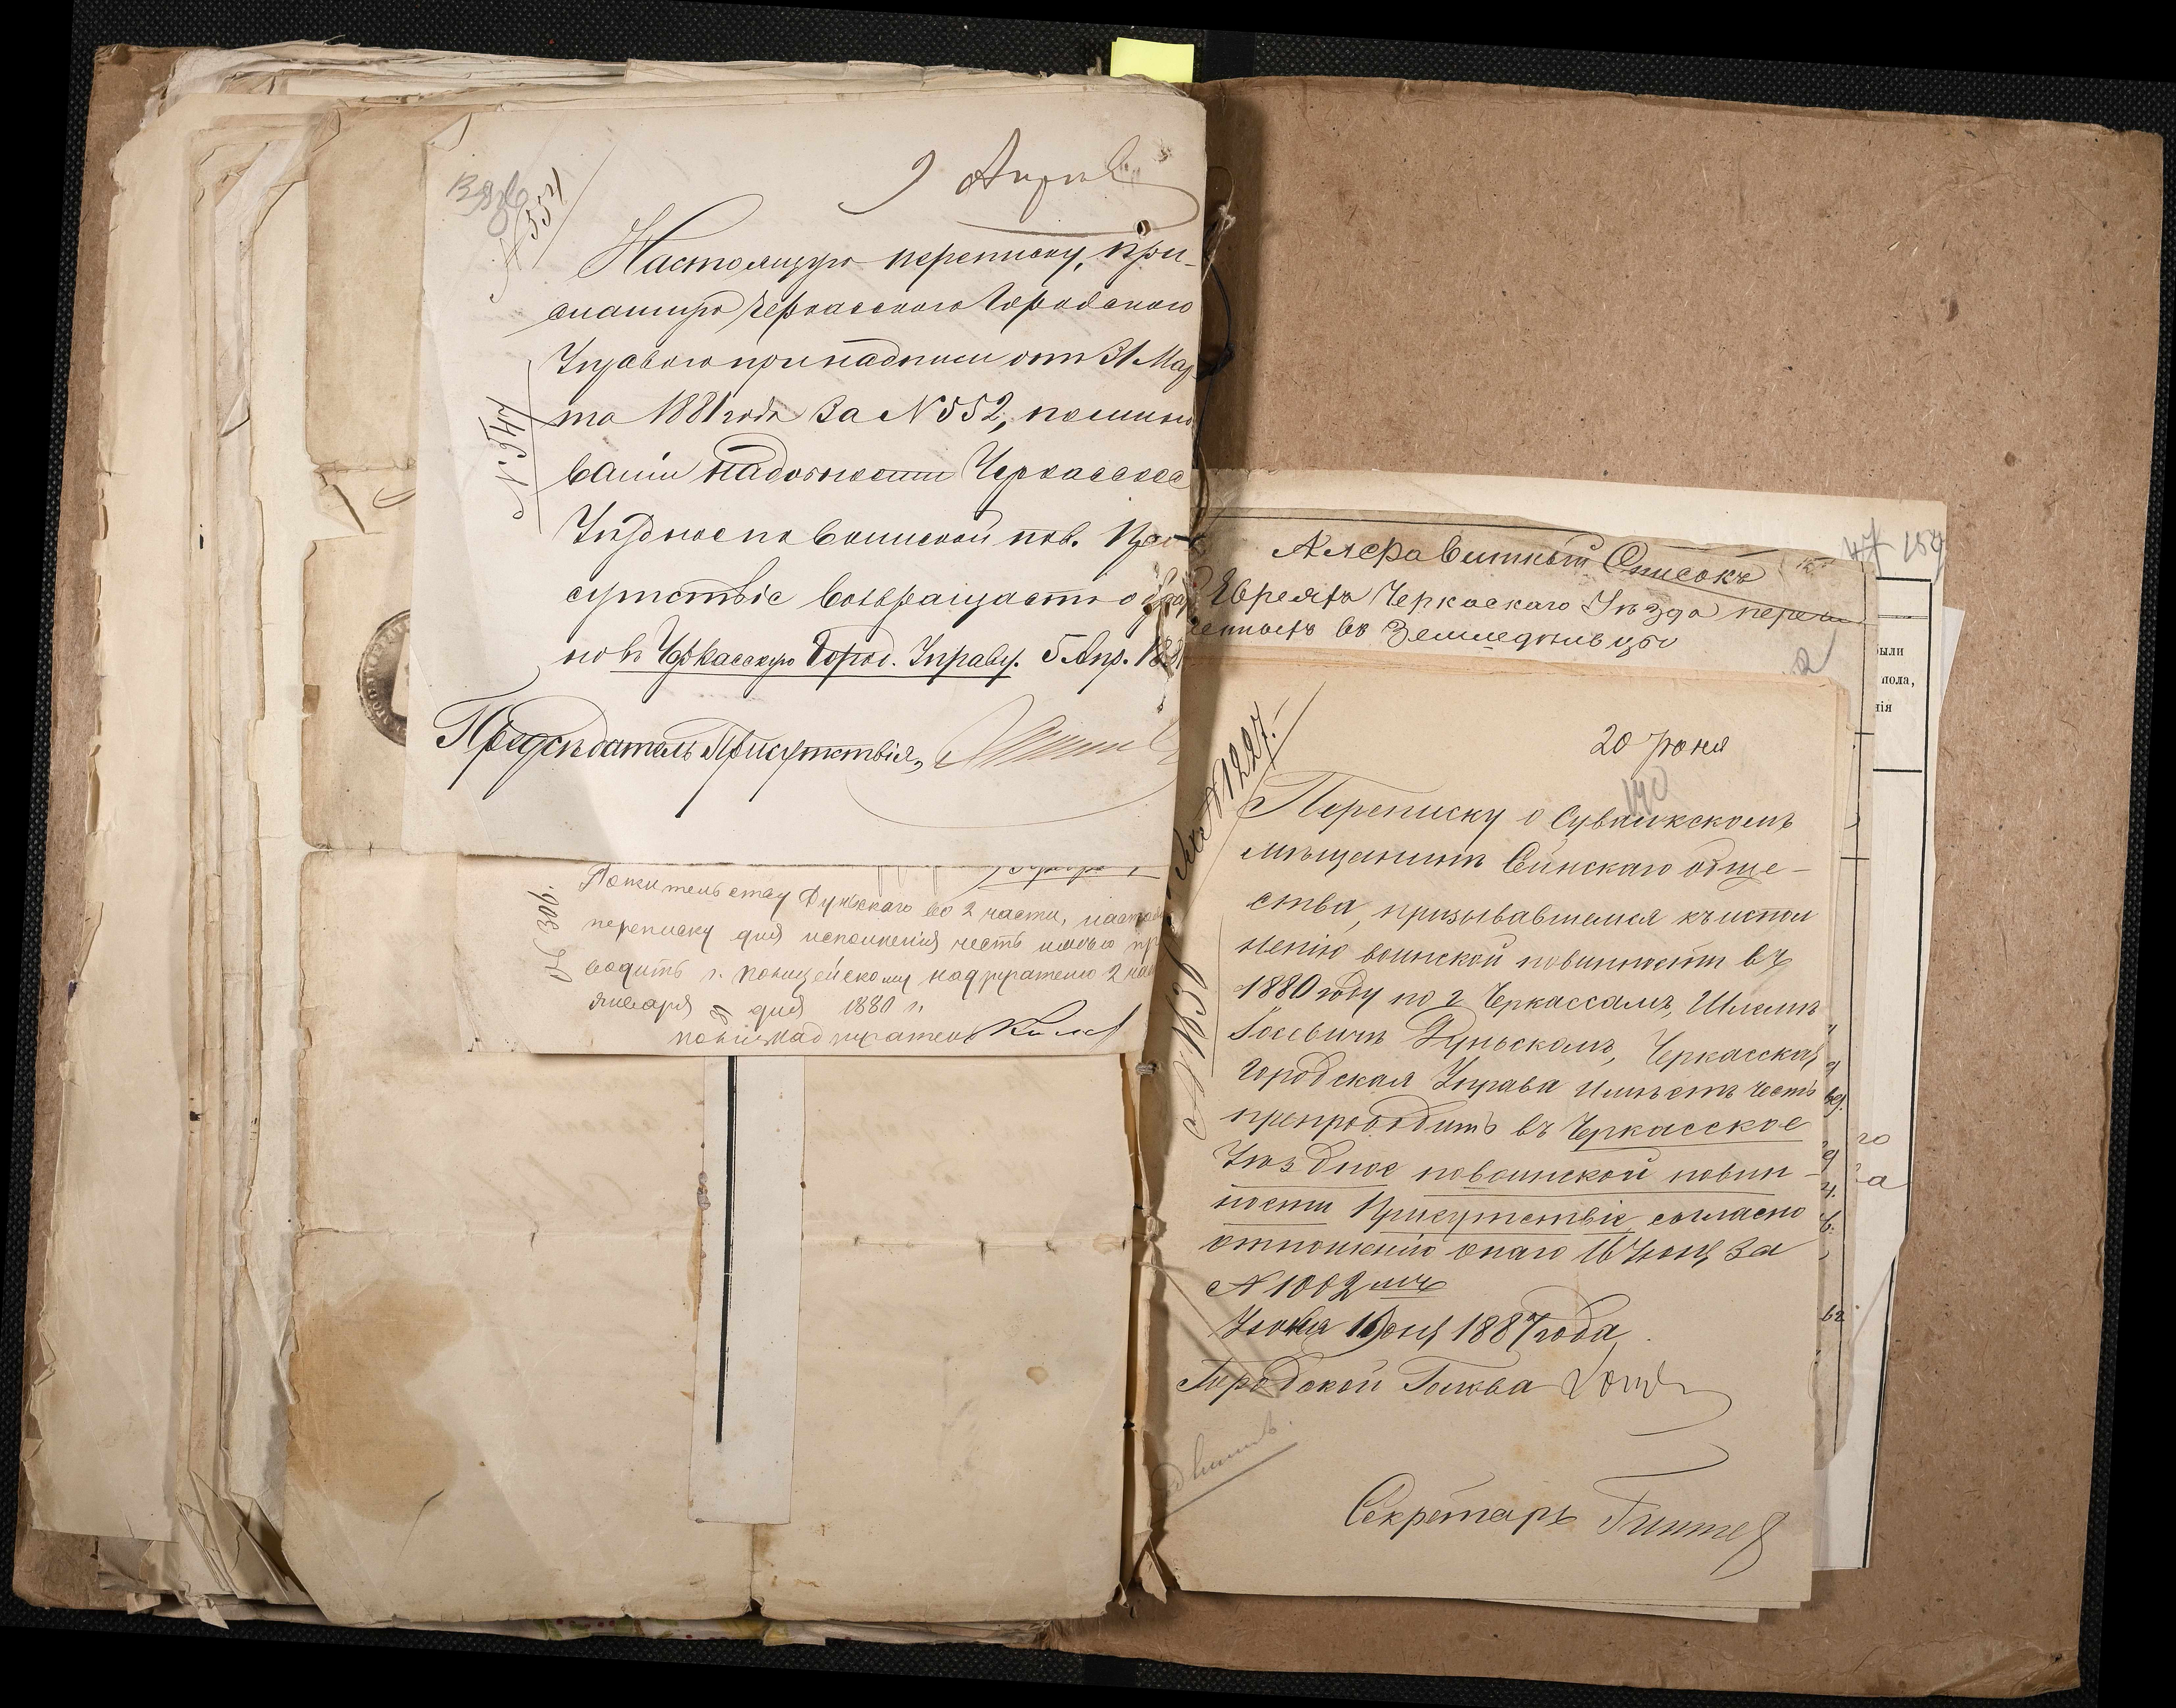 9 Апрель
№ 554
Настоящую переписку, при-
сланную Черкасского Городского
Управою при надписи от 31 Мар-
та 1881 года за № 552, по минов
ваніи надобности Черкасское
Уѣздное по воинской пов. При-
сутствіе возвращаетъ обрат
но въ Черкасскую Город. Управу. 5 Апр. 1881
Предсѣдатель Присутствія,
№ 547
Жительству Дунскаго во 2 части, настоя
переписку для исполненія честь имѣю пр
водить г. полицейскому надзирателю 2 час
января дня 1880 г.
полиц. надзиратель
Алфавитный Списокъ
Евреямъ Черкаскаго Уѣзда переи
ченныхъ во Земледѣльцы
47 159
ыли
пола,
нія
20 Юня
140
№ 1227.
Переписку о Сувалкскомъ
мѣщанинѣ Сейнскаго обще-
ства, призывавшемся къ испол
ненію воинской повинности въ
1880 году по г Черкассамъ, Шлемѣ
Госевичѣ Дунскомъ, Черкасская
Городская Управа имѣетъ честь
препроводить въ Черкасское
Уѣздное по воинской повин-
ности Присутствіе, согласно
отношенію онаго 16 Юня за
№ 1002 мъ
Июня 19 дня 1887 года
Городской Голова
Секретарь